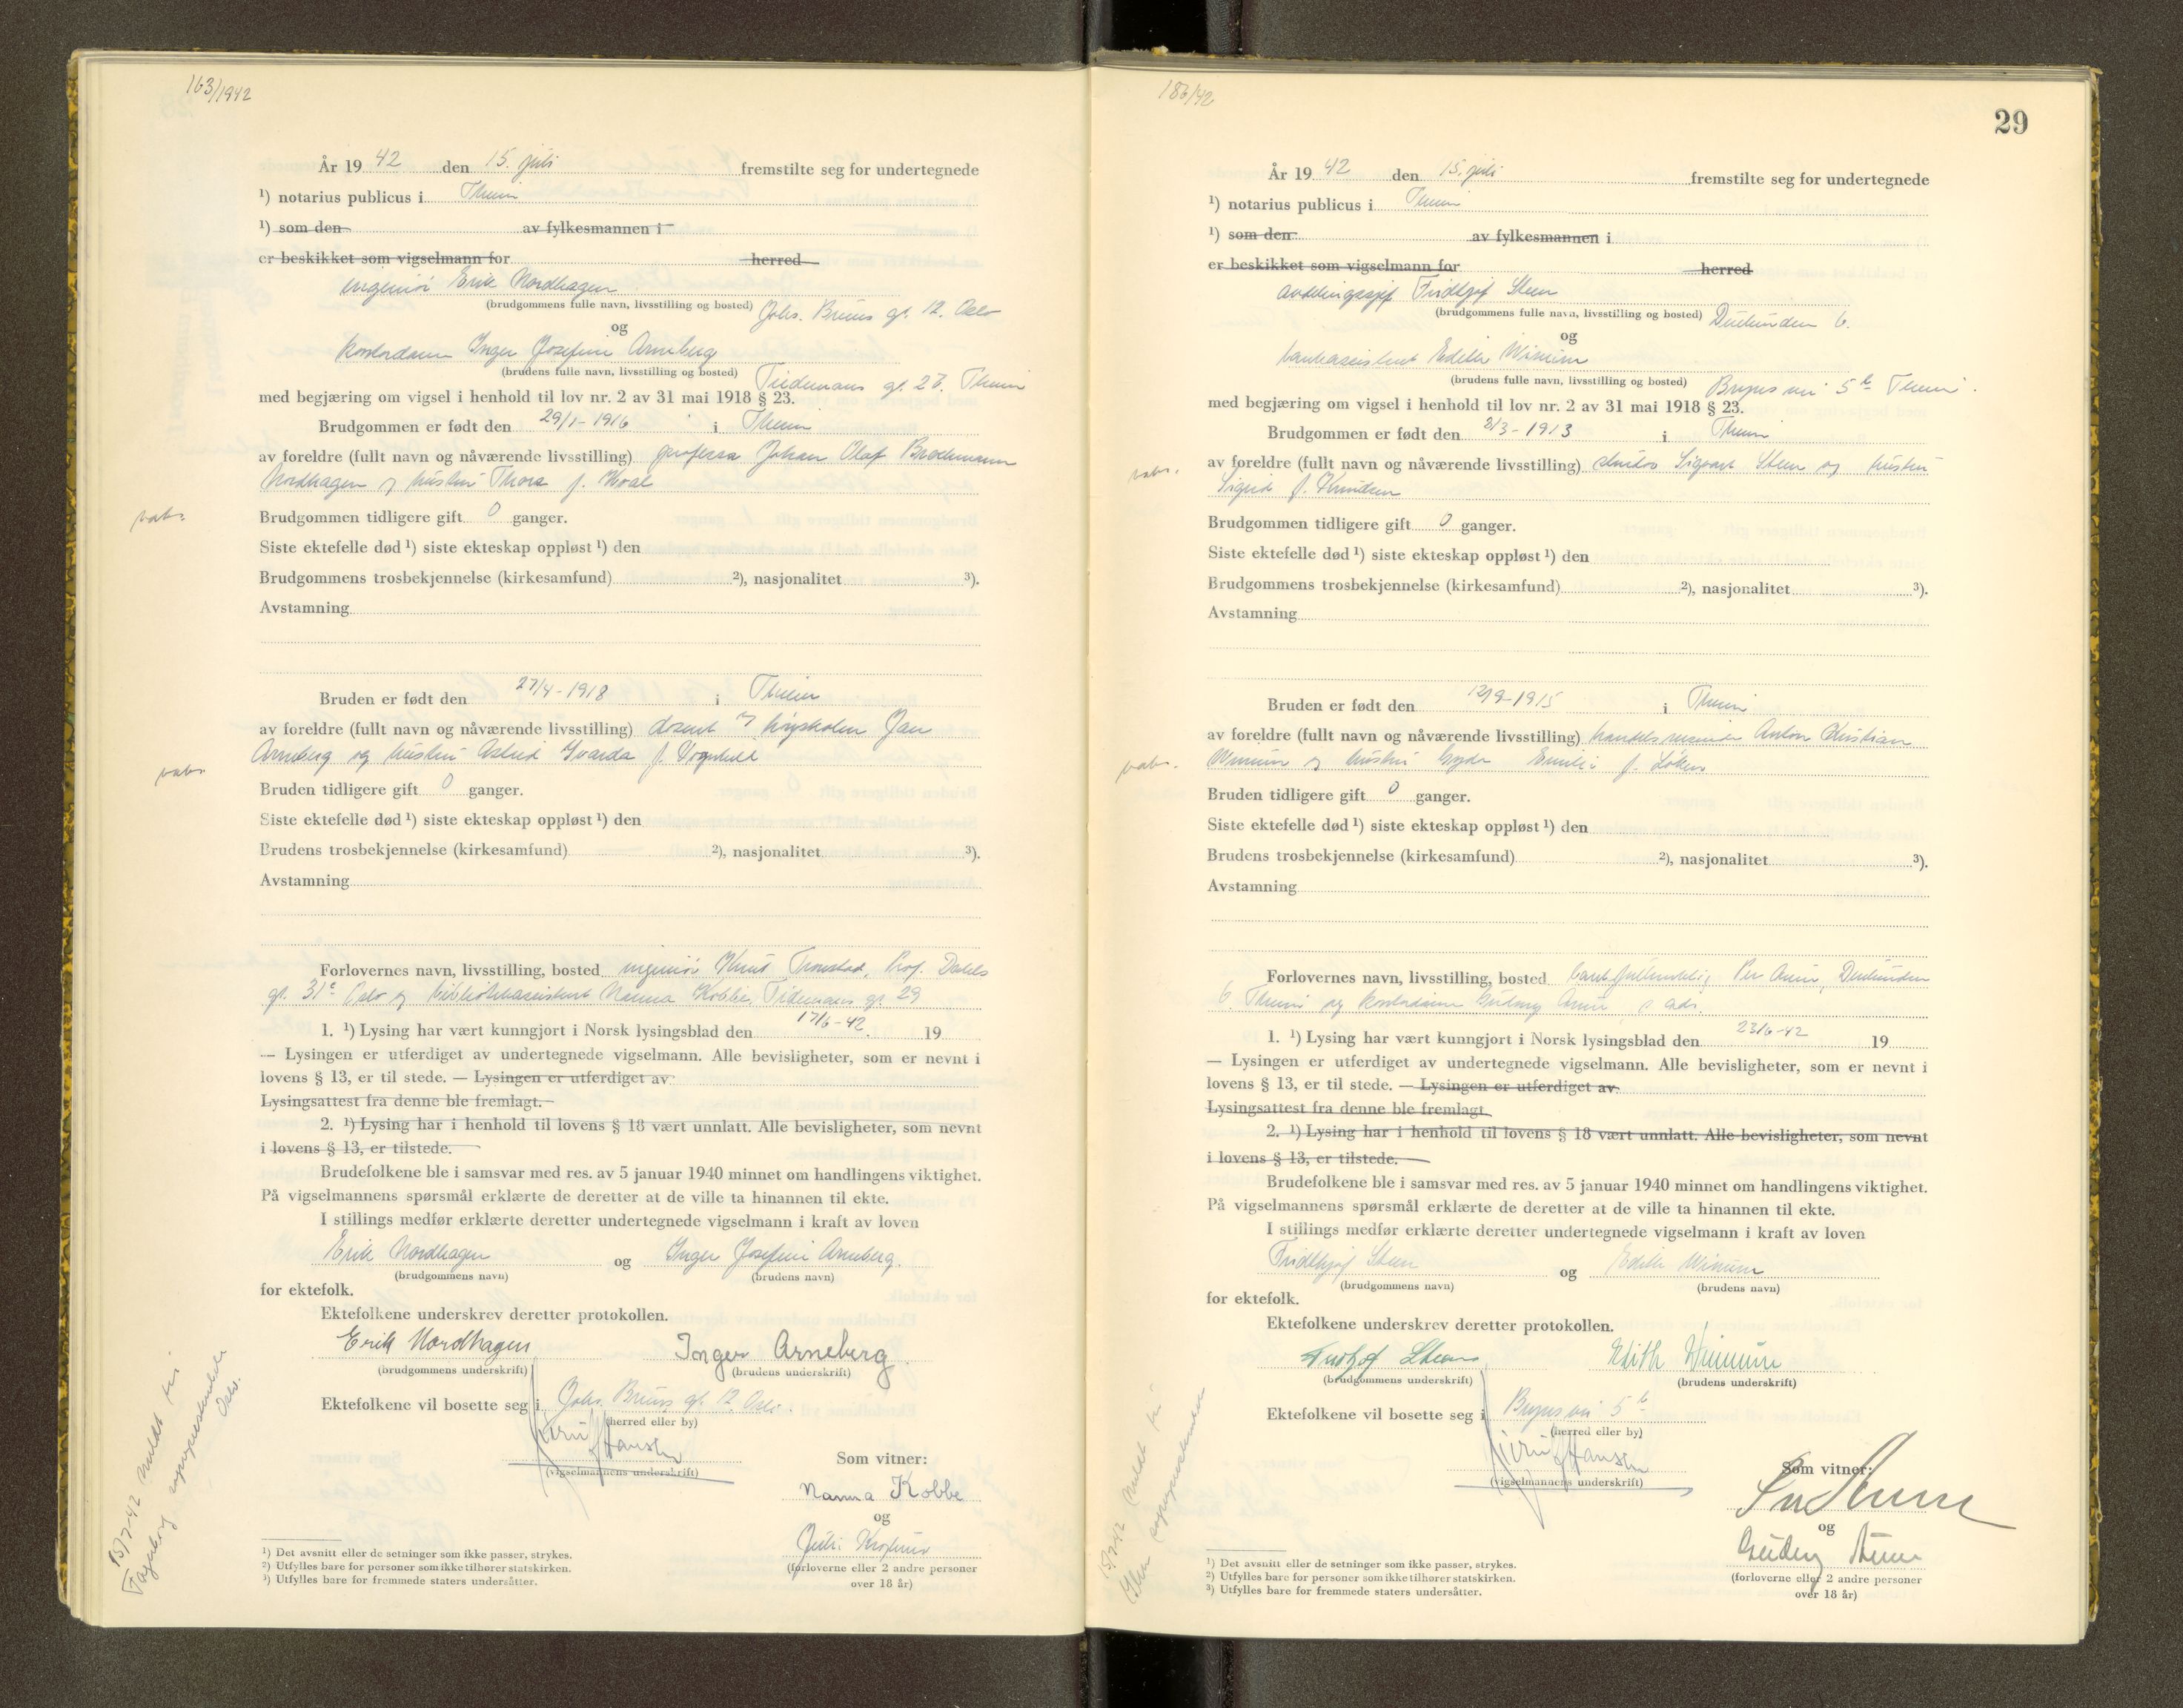 163/1942
År 19 42 den 15. juli fremstilte seg for undertegnede
¹) notarius publicus i Theim
¹) som den av fylkesmannen i
er beskikket som vigselmann for herred
ingeniør Erik Nordhagen
(brudgommens fulle navn, livsstilling og bosted) Johs. Bruns gt. 12. Oslo
og
kontordame Inger Josefine Arneberg
(brudens fulle navn, livsstilling og bosted) Tiedemans gt. 27. Theim
med begjæring om vigsel i henhold til lov nr. 2 av 31 mai 1918 § 23.
Brudgommen er født den 29/1-1916 i Theim
av foreldre (fullt navn og nåværende livsstilling) professor Johan Olaf Brochmann
Nordhagen og hustru Thora f.
vabs.
Brudgommen tidligere gift 0 ganger.
Siste ektefelle død ¹) siste ekteskap oppløst ¹) den
Brudgommens trosbekjennelse (kirkesamfund) ²), nasjonalitet ³).
Avstamning
Bruden er født den 27/4-1918 i Theim
av foreldre (fullt navn og nåværende livsstilling) dosent v høiskolen Jan
Arneberg og hustru Astrid f.
vabs.
Bruden tidligere gift 0 ganger.
Siste ektefelle død ¹) siste ekteskap oppløst ¹) den
Brudens trosbekjennelse (kirkesamfund) ²), nasjonalitet ³).
Avstamning
Forlovernes navn, livsstilling, bosted ingeniør Knut Tronstad, Prof. Dahls
gt. 31c Oslo og bibliotekassistent Nanna Kobbe, Tidemans gt 29
1. ¹) Lysing har vært kunngjort i Norsk lysingsblad den 17/6-42. 19
— Lysingen er utferdiget av undertegnede vigselmann. Alle bevisligheter, som er nevnt i
lovens § 13, er til stede. — Lysingen er utferdiget av
Lysingsattest fra denne ble fremlagt.
2. ¹) Lysing har i henhold til lovens § 18 vært unnlatt. Alle bevisligheter, som nevnt
i lovens § 13, er tilstede.
Brudefolkene ble i samsvar med res. av 5 januar 1940 minnet om handlingens viktighet.
På vigselmannens spørsmål erklærte de deretter at de ville ta hinannen til ekte.
I stillings medfør erklærte deretter undertegnede vigselmann i kraft av loven
Erik Nordhagen og Inger Josefine Arneberg.
(brudgommens navn) (brudens navn)
for ektefolk.
Ektefolkene underskrev deretter protokollen.
Erik Nordhagen Inger Arneberg
(brudgommens underskrift) (brudens underskrift)
Ektefolkene vil bosette seg i Johs. Bruns gt. 12. Oslo.
(herred eller by)
Hansen
(vigselmannens underskrift)
Som vitner:
Nanna Kobbe
og
(forloverne eller 2 andre personer
over 18 år)
15/7-42 meldt til
Fagerborg sogneprestembede
Oslo.
¹) Det avsnitt eller de setninger som ikke passer, strykes.
²) Utfylles bare for personer som ikke tilhører statskirken.
³) Utfylles bare for fremmede staters undersåtter.
186/42
29
År 19 42 den 15. juli fremstilte seg for undertegnede
¹) notarius publicus i Theim
¹) som den av fylkesmannen i
er beskikket som vigselmann for herred
avdelingssjef Fridthjof Steen
(brudgommens fulle navn, livsstilling og bosted) 6.
og
bankassistent Edith Winum
(brudens fulle navn, livsstilling og bosted) 5b Theim.
med begjæring om vigsel i henhold til lov nr. 2 av 31 mai 1918 § 23.
Brudgommen er født den 2/3-1913 i Theim
vabs.
av foreldre (fullt navn og nåværende livsstilling) Sigvart Steen og hustru
Sigrid f. Knudsen
Brudgommen tidligere gift 0 ganger.
Siste ektefelle død ¹) siste ekteskap oppløst ¹) den
Brudgommens trosbekjennelse (kirkesamfund) ²), nasjonalitet ³).
Avstamning
Bruden er født den 12/9-1915 i Theim
av foreldre (fullt navn og nåværende livsstilling) handelsreisende Anton Christian
vabs.
Winum og hustru Gyda Emilie f. Løken
Bruden tidligere gift 0 ganger.
Siste ektefelle død ¹) siste ekteskap oppløst ¹) den
Brudens trosbekjennelse (kirkesamfund) ²), nasjonalitet ³).
Avstamning
Forlovernes navn, livsstilling, bosted bankfullmektig Per
6. Theim og kontordame Gudny s. ads.
1. ¹) Lysing har vært kunngjort i Norsk lysingsblad den 23/6-42 19
— Lysingen er utferdiget av undertegnede vigselmann. Alle bevisligheter, som er nevnt i
lovens § 13, er til stede. — Lysingen er utferdiget av
Lysingsattest fra denne ble fremlagt
2. ¹) Lysing har i henhold til lovens § 18 vært unnlatt. Alle bevisligheter, som nevnt
i lovens § 13, er tilstede.
Brudefolkene ble i samsvar med res. av 5 januar 1940 minnet om handlingens viktighet.
På vigselmannens spørsmål erklærte de deretter at de ville ta hinannen til ekte.
I stillings medfør erklærte deretter undertegnede vigselmann i kraft av loven
Fridthjof Steen og Edith Winum
(brudgommens navn) (brudens navn)
for ektefolk.
Ektefolkene underskrev deretter protokollen.
Fridtjof Steen Edith Winum
(brudgommens underskrift) (brudens underskrift)
Ektefolkene vil bosette seg i 5b
(herred eller by)
Hansen
(vigselmannens underskrift)
Som vitner:
og
(forloverne eller 2 andre personer
over 18 år)
15/7-42 meldt til
sogneprestembede
¹) Det avsnitt eller de setninger som ikke passer, strykes.
²) Utfylles bare for personer som ikke tilhører statskirken.
³) Utfylles bare for fremmede staters undersåtter.